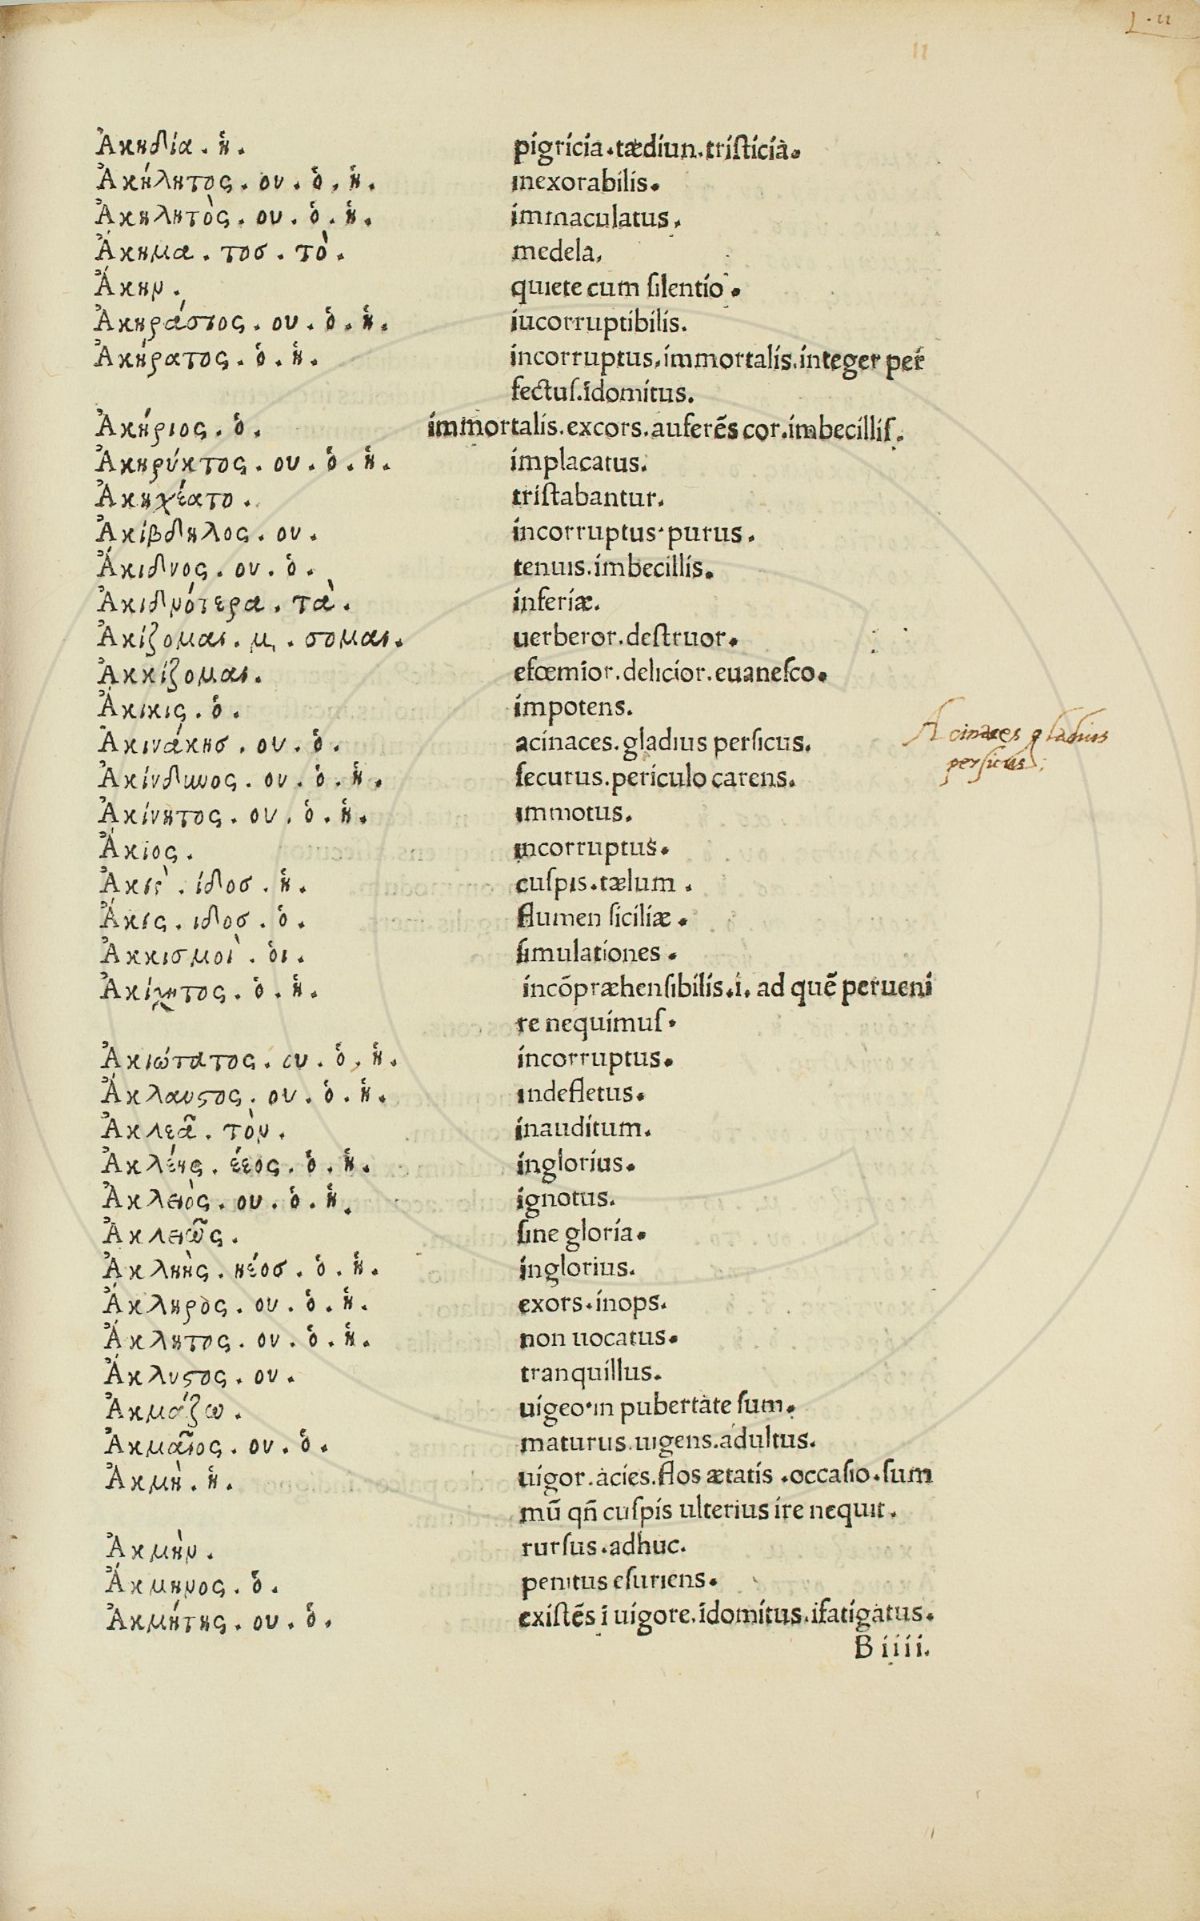 11
Ἀκηδία . ἡ . pigricia . tædiun . tristicia .
Ἀκήλητος . ου . ὁ . ἡ . inexorabilis .
Ἀκηλητὸς . ου . ὁ . ἡ . immaculatus .
Ἄκημα . τοσ . τὸ . medela .
Ἄκην . quiete cum ſilentio .
Ἀκηράσιος . ου . ὁ . ἡ . iucorruptibilis .
Ἀκήρατος . ὁ . ἡ . incorruptus . immortalis . integer per
fectuſ . īdomitus .
Ἀκήριος . ὁ . immortalis . excors . auferēs cor . imbecilliſ .
Ἀκηρύκτος . ου . ὁ . ἡ . implacatus .
Ἀκηχέατο . triſtabantur .
Ἀκίβδηλος . ου . incorruptus . purus .
Ἄκιδνος . ου . ὁ . tenuis . imbecillis .
Ἀκιδνότερα . τὰ . inferiæ .
Ἀκίζομαι . μ . σομαι . uerberor . deſtruor .
Ἀκκίζομαι . efœmior . delicior . euaneſco .
Ἄκικις . ὁ . impotens .
Ἀκινάκησ . ου . ὁ . acinaces . gladius perſicus .
Acinaces gladius
persicus
Ἀκίνδυνος . ου . ὁ . ἡ . ſecurus . periculo carens .
Ἀκίνητος . ου . ὁ . ἡ . immotus .
Ἄκιος . incorruptus .
Ἀκὶς . ίδοσ . ἡ . cuſpis . tælum .
Ἄκις . ιδοσ . ὁ . flumen ſiciliæ .
Ἀκκισμοὶ . ὁι . ſimulationes .
Ἀκίχητος . ὁ . ἡ . incōpræhenſibilis . i . ad quē perueni
re nequimuſ .
Ἀκιώτατος . ου . ὁ . ἡ . incorruptus .
Ἄκλαυστος . ου . ὁ . ἡ . indefletus .
Ἀκλεᾶ . τὸν . inauditum .
Ἀκλέης . έεος . ὁ . ἡ . inglorius .
Ἀκλειὸς . ου . ὁ . ἡ . ignotus .
Ἀκλειῶς . ſine gloria .
Ἀκληὴς . ηέοσ . ὁ . ἡ . inglorius .
Ἄκληρος . ου . ὁ . ἡ . exors . inops .
Ἄκλητος . ου . ὁ . ἡ . non uocatus .
Ἄκλυστος . ου . tranquillus .
Ἀκμάζω . uigeo . in pubertate ſum .
Ἀκμαῖος . ου . ὁ . maturus . uigens . adultus .
Ἀκμὴ . ἡ . uigor . acies . flos ætatis . occaſio . ſum
mū qñ cuſpis ulterius ire nequit .
Ἀκμὴν . rurſus . adhuc .
Ἄκμηνος . ὁ . penitus eſuriens .
Ἀκμήτης . ου . ὁ . exiſtēs ī uigore . īdomitus . ifatigatus .
B iiii .